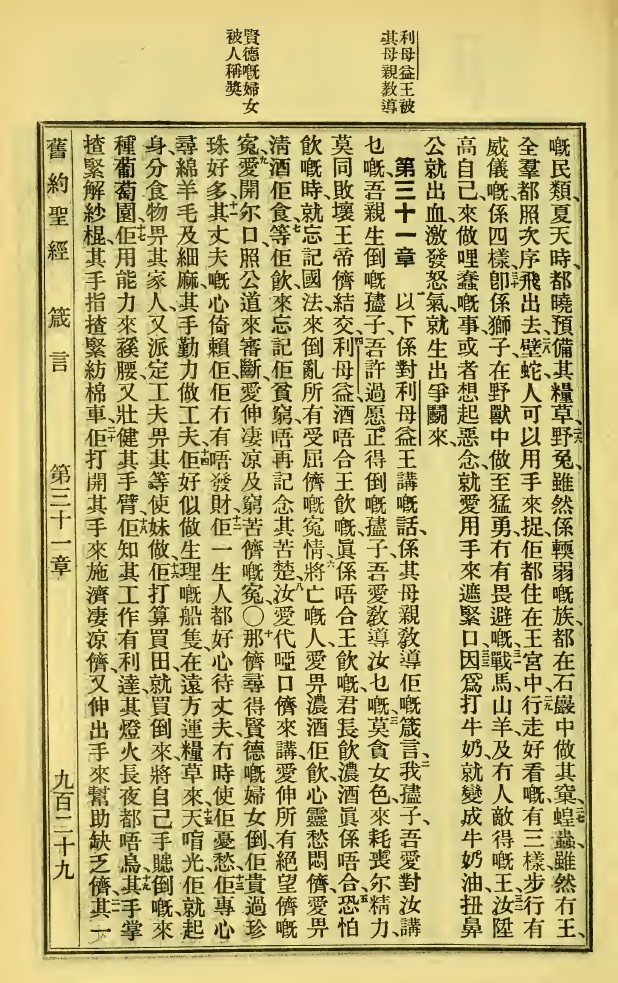 利母益王被
其母親教導
賢德嘅婦女
被人稱獎
嘅民類、夏天時都曉預備其糧草、野兔雖然係輭弱嘅族、都在石巖中做其窠、蝗蟲雖然冇王、
全羣都照次序飛出去、壁蛇人可以用手來捉、佢都住在王宮中、行走好看嘅有三樣、步行有
威儀嘅、係四樣、卽係獅子在野獸中做至猛勇、冇有畏避嘅、戰馬、山羊、及冇人敵得嘅王、汝陞
高自己、來做哩蠢嘅事、或者想起惡念、就愛用手來遮緊口、因爲打牛奶就變成牛奶油、扭鼻
公就出血、激發怒氣、就生出爭鬭來、
第三十一章 一以下係對利母益王講嘅話、係其母親教導佢嘅箴言、二我孻子、吾愛對汝講
乜嘅、吾親生倒嘅孻子、吾許過愿正得倒嘅孻子、吾愛敎導汝乜嘅、三莫貪女色來耗喪尔精力、
莫同敗壞王帝儕結交、四利母益、酒唔合王飲嘅、眞係唔合王飲嘅、君長飲濃酒眞係唔合、五恐怕
飲嘅時、就忘記國法、來倒亂所有受屈儕嘅冤情、六將亡嘅人、愛畀濃酒佢飲、心靈愁悶儕、愛畀
淸酒佢食、七等佢飲來忘記佢貧窮、唔再記念其苦楚、八汝愛代啞口儕來講、愛伸所有絕望儕嘅
冤、九愛開尔口、照公道來審斷、愛伸凄凉及窮苦儕嘅冤、〇十那儕尋得賢德嘅婦女倒、佢貴過珍
珠好多、十一其丈夫嘅心倚賴佢、佢冇有唔發財、十二佢一生人都好心待丈夫、冇時使佢憂愁、十三佢專心
尋綿羊毛及細麻、其手勤力做工夫、十四佢好似做生理嘅船隻、在遠方運糧草來、十五天唷光佢就起
身、分食物畀其家人、又派定工夫畀其等使妹做、十六佢打算買田就買倒來、將自己手賺倒嘅來
種葡萄園、十七佢用能力來縏腰、又壯健其手臂、十八佢知其工作有利達、其燈火長夜都唔烏、十九其手掌
揸緊解紗棍、其手指揸緊紡棉車、二十佢打開其手來施濟凄凉儕、又伸出手來幫助缺乏儕、其一
舊約聖經 箴言 第三十一章 九百二十九